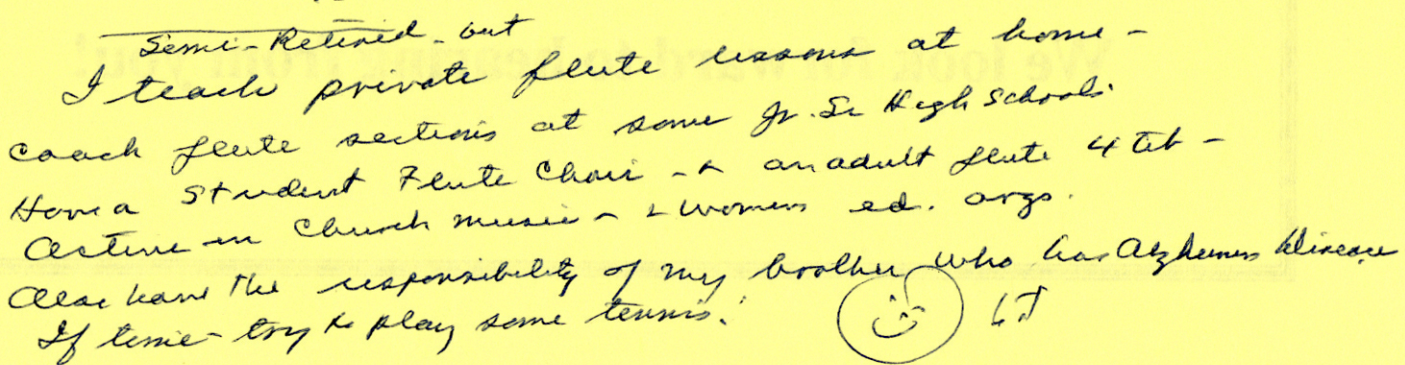 Semi-Retired - but
I teach private flute lessons at home -
Coach flute sections at some Jr. Sr High Schools.
Have a Student Flute Choir - & an adult flute 4 tet -
Active in Church music - & womens ed. orgs.
Also have the responsibility of my brother who has Alzheimers Disease
If time - try to play some tennis.
We look forward to hearing from you!